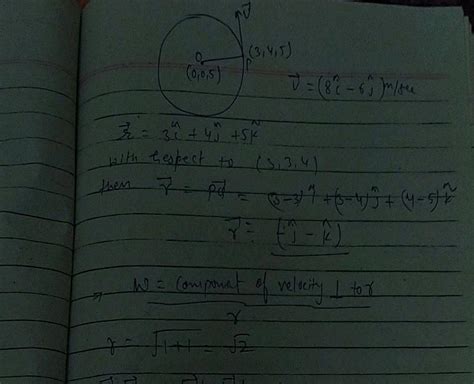 v⃗
(3,4,5)
(0,0,5)
v⃗ = (8î - 6ĵ) m/sec
r⃗ = 3î + 4ĵ + 5k̂
with respect to (3,3,4)
then r⃗ = = (3-3)î + (3-4)ĵ + (4-5)k̂
r⃗ = (-ĵ - k̂)
⇒ W = component of velocity ⊥ to r
r
r = √1+1 = √2